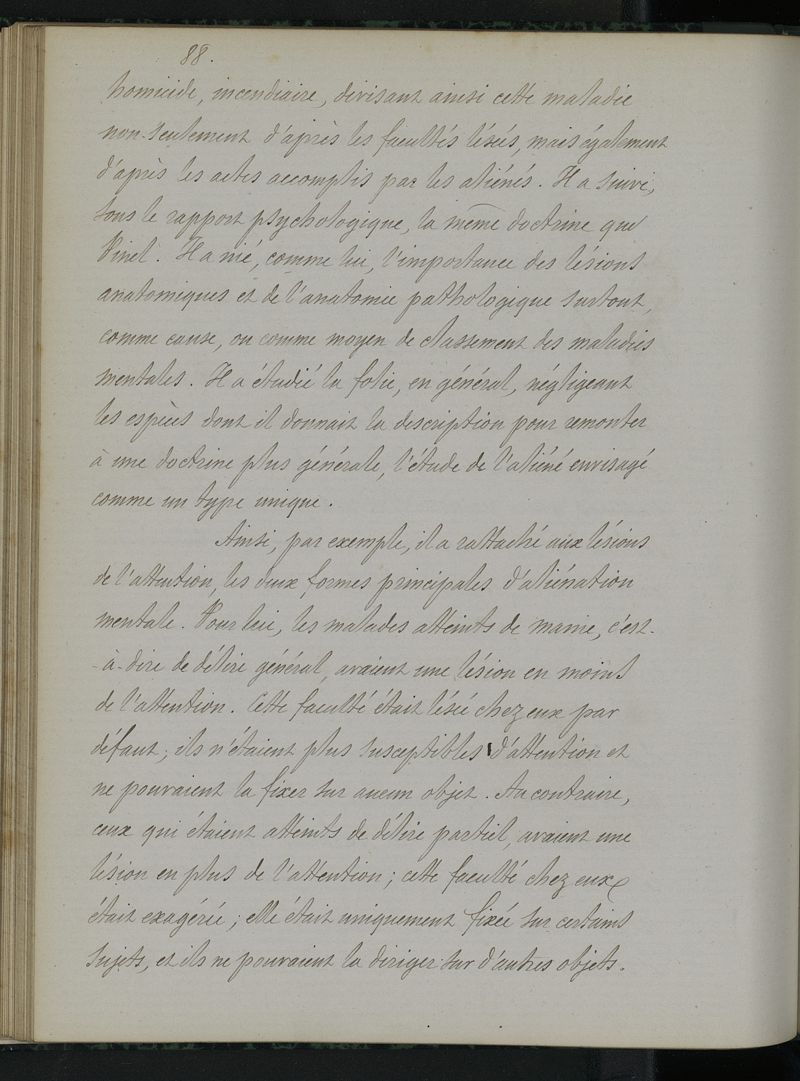 88.
homicide, incendiaire, divisant ainsi cette maladie
non-seulement d'après les facultés lésées, mais également
d'après les actes accomplis par les aliénés. Il a suivi,
sous le rapport psychologique, la même doctrine que
Pinel. Il a nié, comme lui, l'importance des lésions
anatomiques et de l'anatomie pathologique surtout,
comme cause, ou comme moyen de classement des maladies
mentales. Il a étudié la folie, en général, négligeant
les espèces dont il donnait la description pour remonter
à une doctrine plus générale, l'étude de l'aliéné envisagé
comme un type unique.
Ainsi, par exemple, il a rattaché aux lésions
de l'attention, les deux formes principales d'aliénation
mentale. Pour lui, les malades atteints de manie, c'est-
-à-dire de délire général, avaient une lésion en moins
de l'attention. Cette faculté était lésée chez eux par
défaut; ils n'étaient plus susceptibles d'attention et
ne pouvaient la fixer sur aucun objet. Au contraire,
ceux qui étaient atteints de délire partiel, avaient une
lésion en plus de l'attention; cette faculté chez eux
était exagérée; elle était uniquement fixée sur certains
sujets, et ils ne pouvaient la diriger sur d'autres objets.